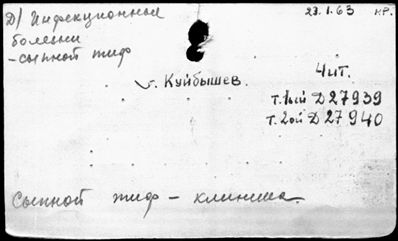 Д/ Инфекционные 23.1.63 кр.
болезни
-сыпной тиф
г. Куйбышев.
Чит.
т. 1ый Д 27939
т. 2ой Д 27940
Сыпной тиф - клиника.